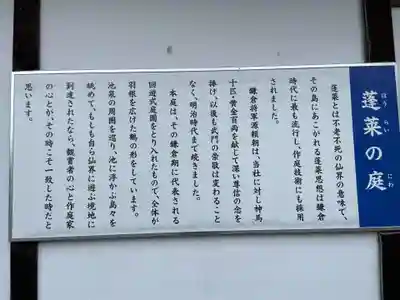 蓬莱の庭
ほう らい にわ
蓬莱とは不老不死の仙界の意味で、
その島にあこがれる蓬莱思想は鎌倉
時代に最も流行し、作庭技術にも採用
されました。
鎌倉将軍源頼朝は、当社に対し神馬
十匹・黄金百両を献じて深い尊信の念を
捧げ、以後も武門の崇敬は変わること
なく、明治時代まで続きました。
本庭は、その鎌倉期に代表される
回遊式庭園をとり入れたもので、全体が
羽根を広げた鶴の形をしています。
池泉の周囲を巡り、池に浮かぶ島々を
眺めて、もしも自ら仙界に遊ぶ境地に
到達されたなら、観賞者の心と作庭家
の心とが、その時こそ一致した時だと
思います。